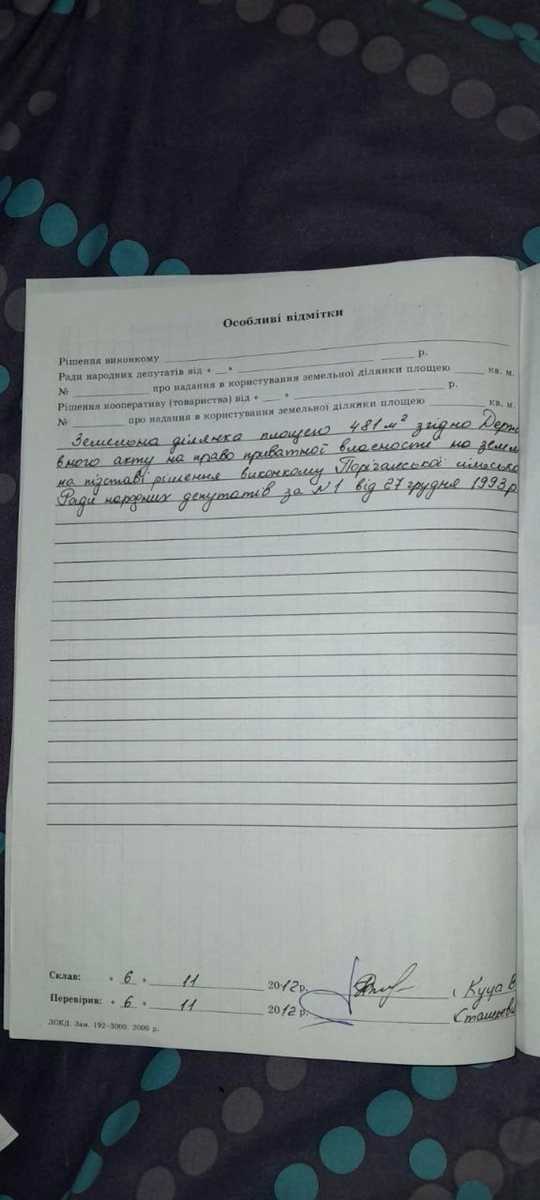 Особливі відмітки
Рішення виконкому
Ради народних депутатів від « » р.
№ про надання в користування земельної ділянки площею кв. м.
Рішення кооперативу (товариства) від « » р.
№ про надання в користування земельної ділянки площею кв. м.
Земельна ділянка площею 481 м² згідно Держ
вного акту на право приватної власності на земл
на підставі рішення виконкому сільсько
Ради народних депутатів за №1 від 27 грудня 1993р.
Склав: « 6 » 11 2012 р. ( Куца В
Перевірив: « 6 » 11 2012 р.
ЛОКД. Зам. 192–3000. 2006 р.